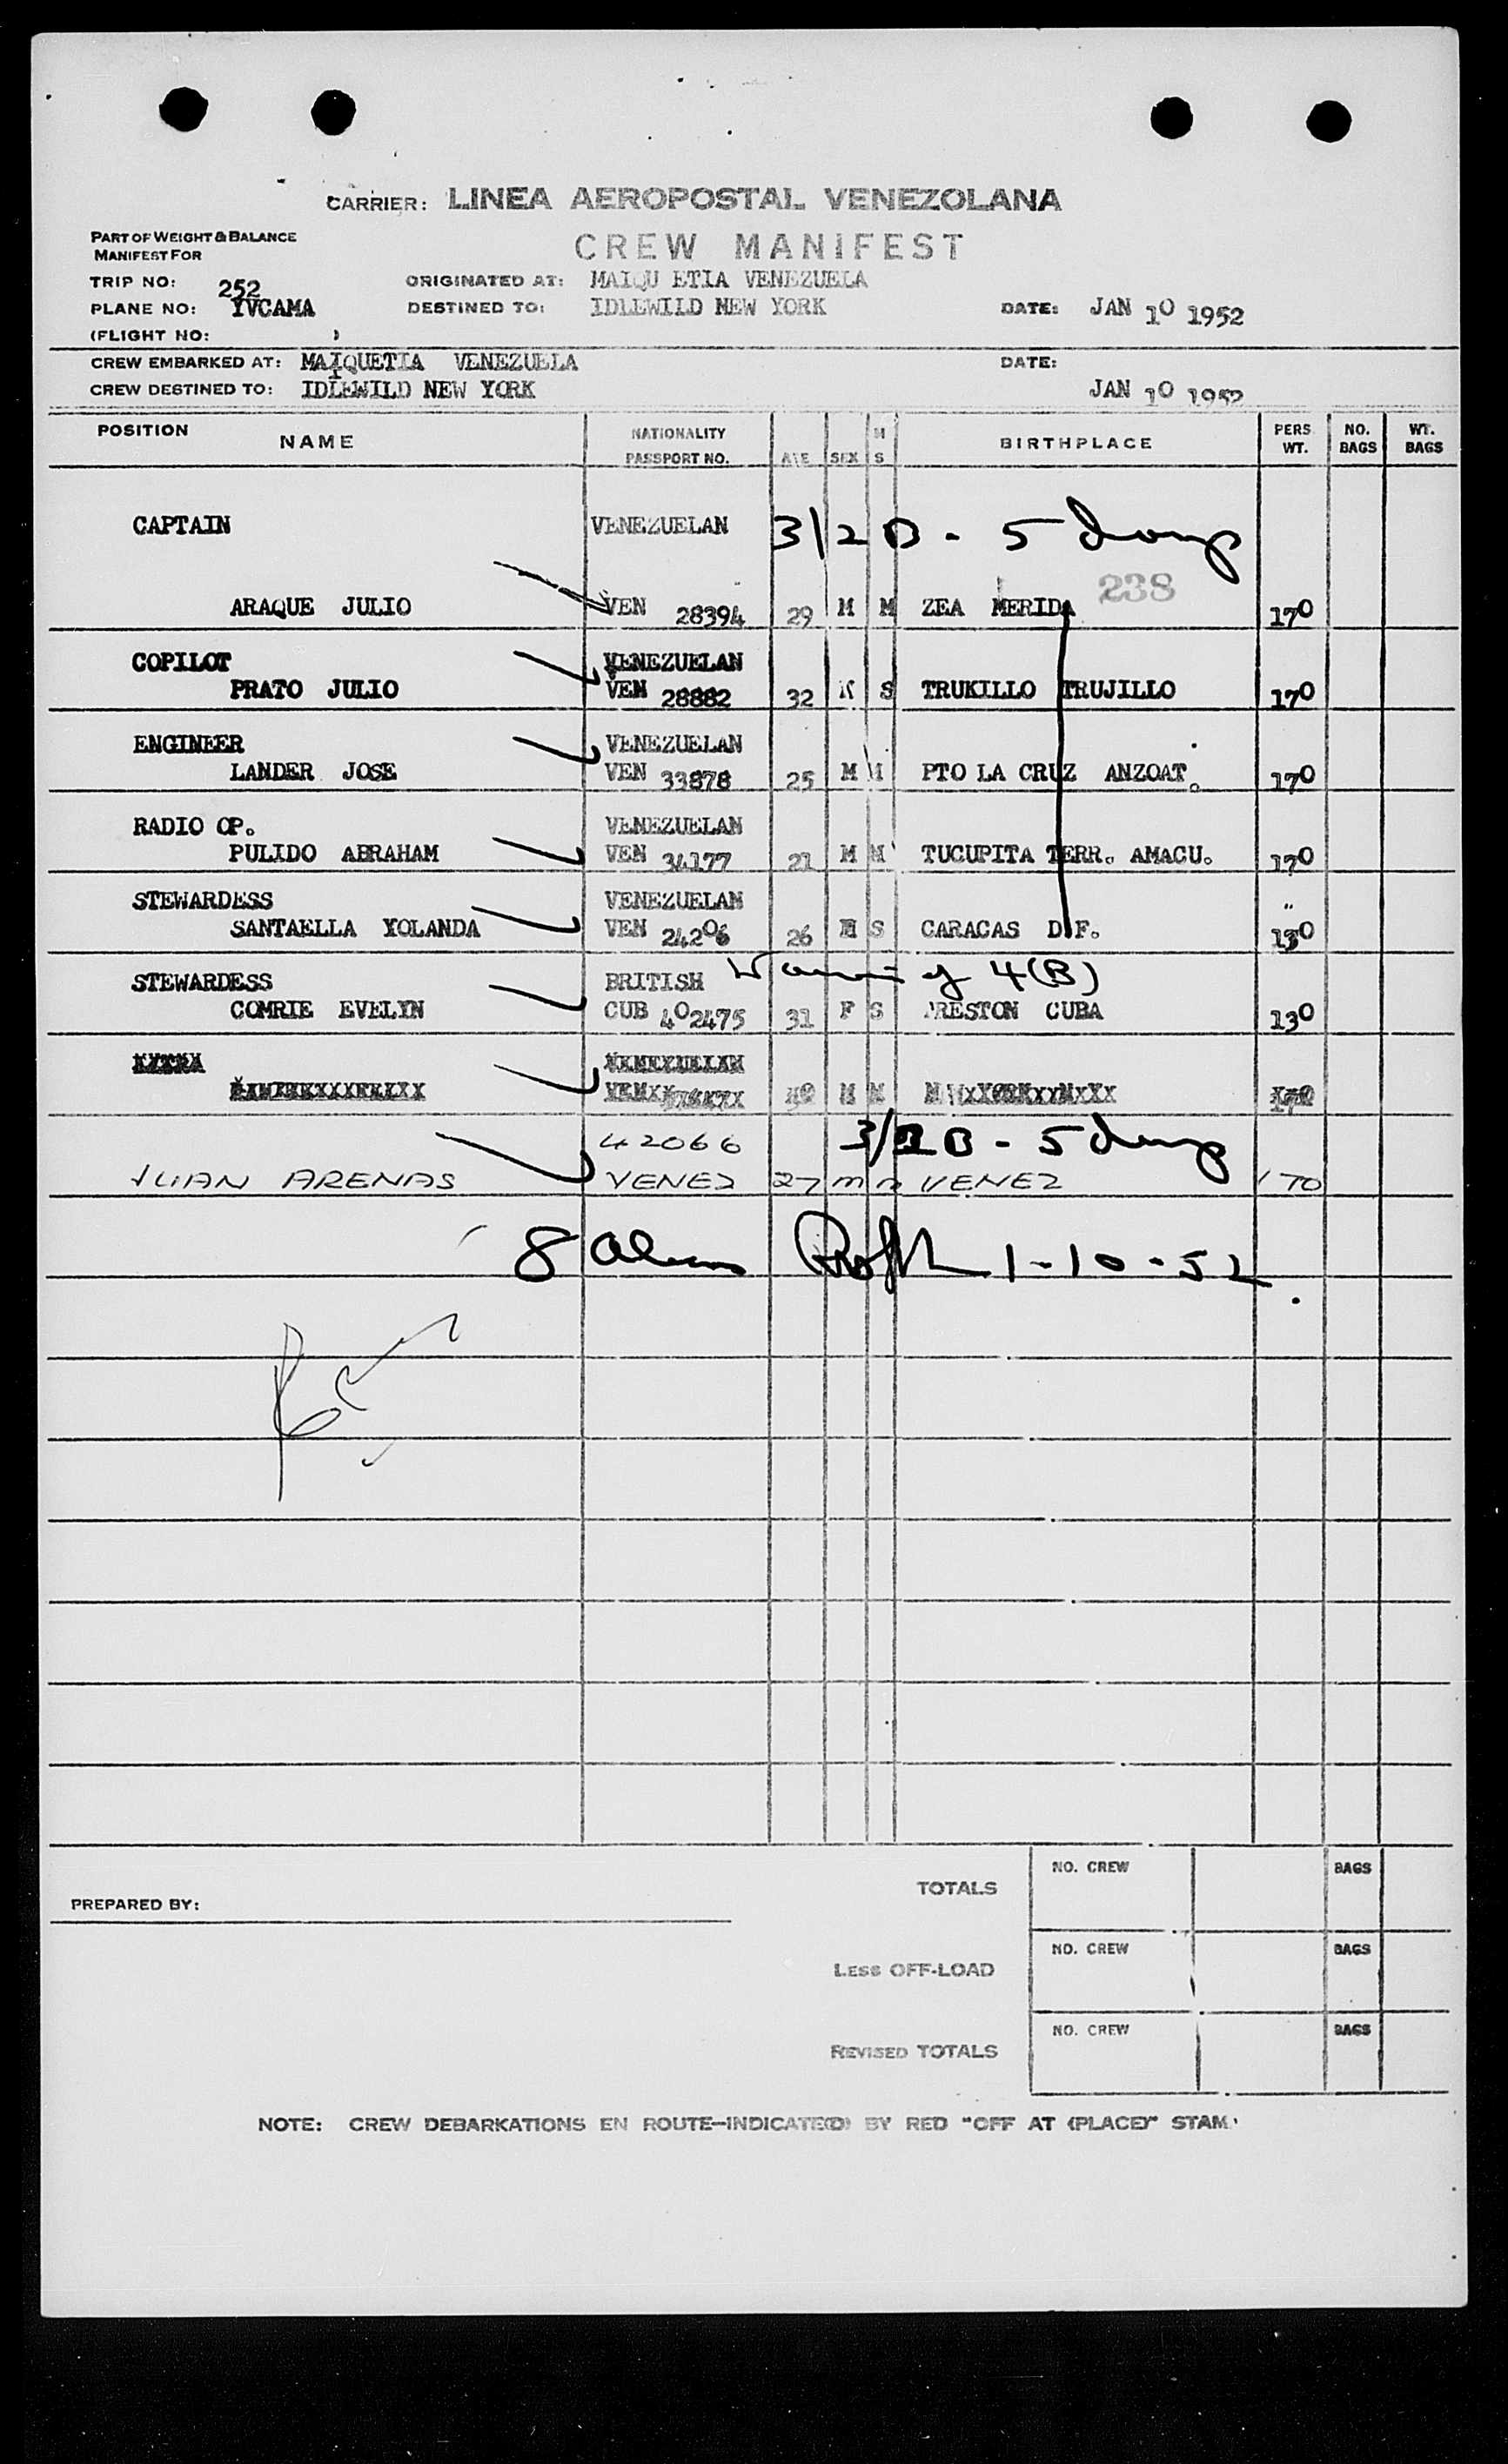 CARRIER: LINEA AEROPOSTAL VENEZOLANA
PART OF WEIGHT & BALANCE
MANIFEST FOR
CREW MANIFEST
TRIP NO: 252 ORIGINATED AT: MAIQU ETIA VENEZUELA
PLANE NO: YVCAMA DESTINED TO: IDLEWILD NEW YORK DATE: JAN 10 1952
(FLIGHT NO: )
CREW EMBARKED AT: MAIQUETIA VENEZUELA DATE:
CREW DESTINED TO: IDLEWILD NEW YORK JAN 10 1952
POSITION NAME NATIONALITY PASSPORT NO. AGE SEX M S BIRTHPLACE PERS WT. NO. BAGS WT. BAGS
CAPTAIN VENEZUELAN 3/2 B - 5 days
238
ARAQUE JULIO VEN 28394 29 M M ZEA MERIDA 170
COPILOT VENEZUELAN
PRATO JULIO VEN 28882 32 S TRUKILLO TRUJILLO 170
ENGINEER VENEZUELAN
LANDER JOSE VEN 33878 25 M M PTO LA CRUZ ANZOAT. 170
RADIO OP. VENEZUELAN
PULIDO ABRAHAM VEN 34177 21 M M TUCUPITA TERR. AMACU. 170
STEWARDESS VENEZUELAN "
SANTAELLA YOLANDA VEN 24206 26 S CARACAS D.F. 130
STEWARDESS BRITISH 4(B)
COMRIE EVELYN CUB 402475 31 F S PRESTON CUBA 130
42066 3/2 B - 5 days
JUAN ARENAS VENEZ 27 m m VENEZ 170
8 Aliens 1-10-52
PREPARED BY:
TOTALS NO. CREW BAGS
LESS OFF-LOAD NO. CREW BAGS
REVISED TOTALS NO. CREW BAGS
NOTE: CREW DEBARKATIONS EN ROUTE—INDICATE(D) BY RED "OFF AT (PLACE)" STAM